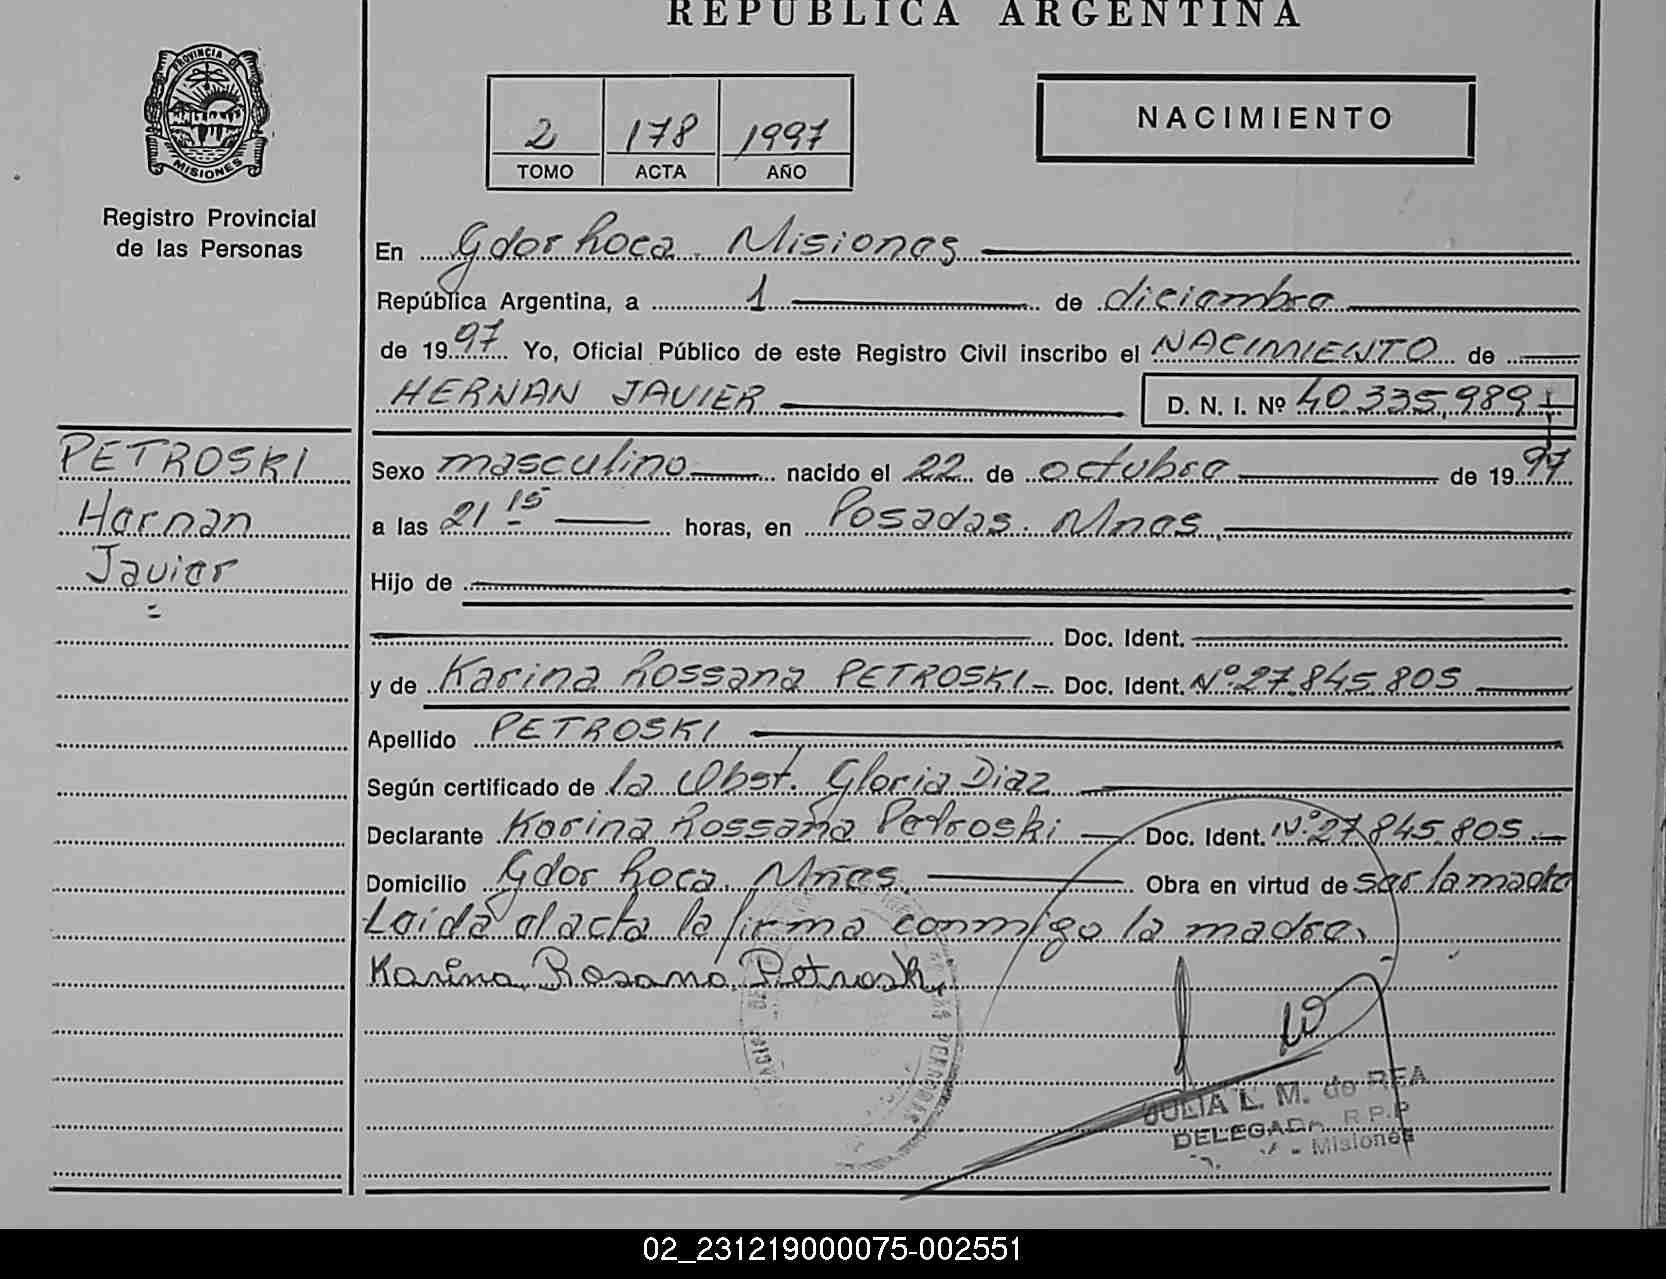 REPUBLICA ARGENTINA
PROVINCIA DE
MISIONES
Registro Provincial
de las Personas
2 178 1997
TOMO ACTA AÑO
NACIMIENTO
En Gdor Roca. Misiones
República Argentina, a 1 de diciembre
de 1997 Yo, Oficial Público de este Registro Civil inscribo el NACIMIENTO de
HERNAN JAVIER D. N. I. Nº 40.335.989
PETROSKI
Hernan
Javier
Sexo masculino nacido el 22 de octubre de 1997
a las 21 15 horas, en Posadas. Mnes.
Hijo de
Doc. Ident.
y de Karina Rossana PETROSKI Doc. Ident. Nº 27.845.805
Apellido PETROSKI
Según certificado de la Obst. Gloria Diaz
Declarante Karina Rossana Petroski Doc. Ident. Nº 27.845.805
Domicilio Gdor Roca. Mnes. Obra en virtud de ser la madre
Leída el acta la firma conmigo la madre.
Karina Rosana Petroski
JULIA L. M. de REA
DELEGADA R.P.P
Misiones
02_231219000075-002551